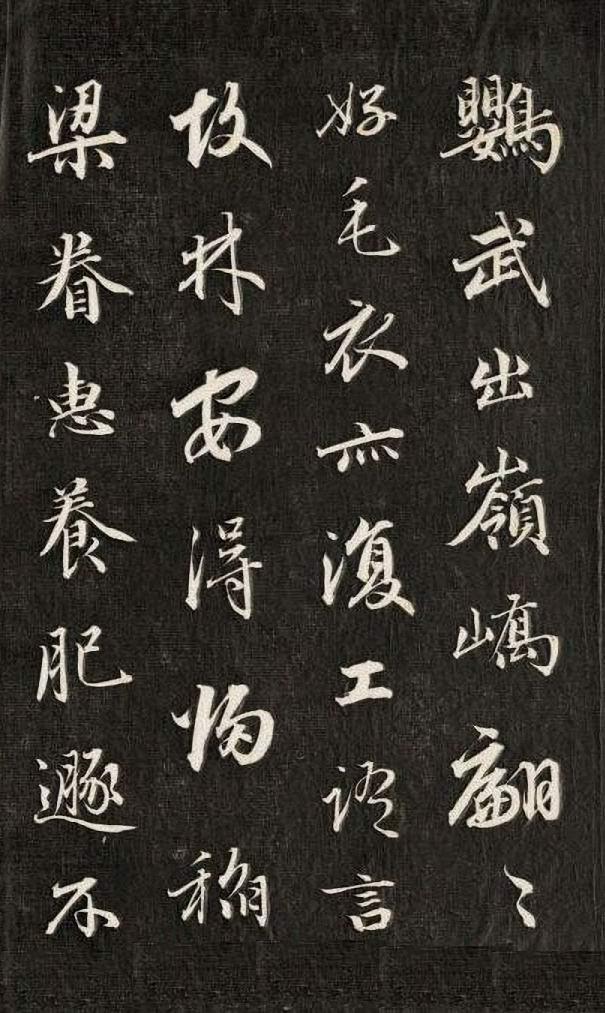 鸚武出嶺嶠翩〻
好毛衣亦復工語言
故林安得歸稻
梁眷惠養肥遯不